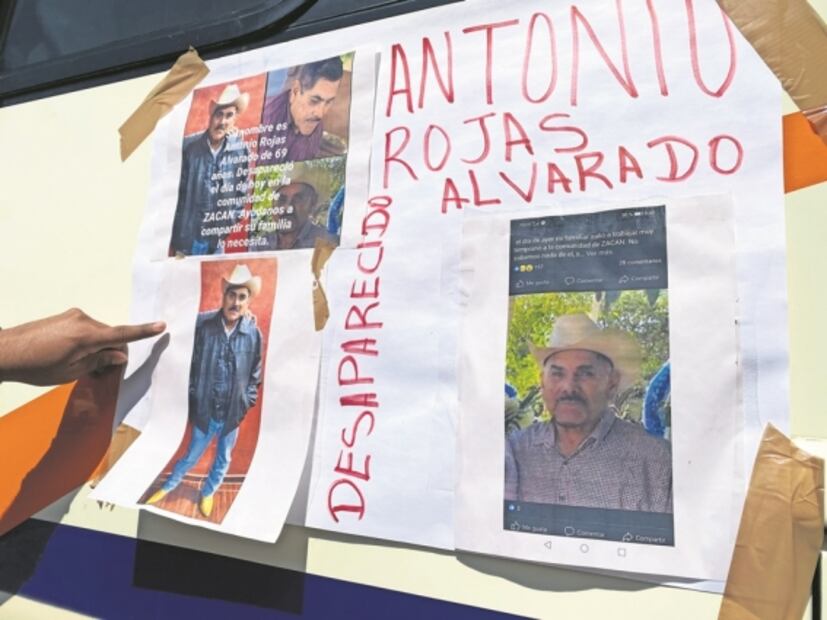 ANTONIO
ROJAS
ALVARADO
DESAPARECIDO
Su nombre es
Antonio Rojas
Alvarado de 69
años. Desapareció
el día de hoy en la
comunidad de
ZACAN. Ayúdanos a
compartir su familia
lo necesita.
el día de ayer mi familiar salió a trabajar muy
temprano a la comunidad de ZACAN. No
sabemos nada de el, s... Ver más
157
28 comentarios
Me gusta
Comentar
Compartir
Me gusta
Comentar
Compartir